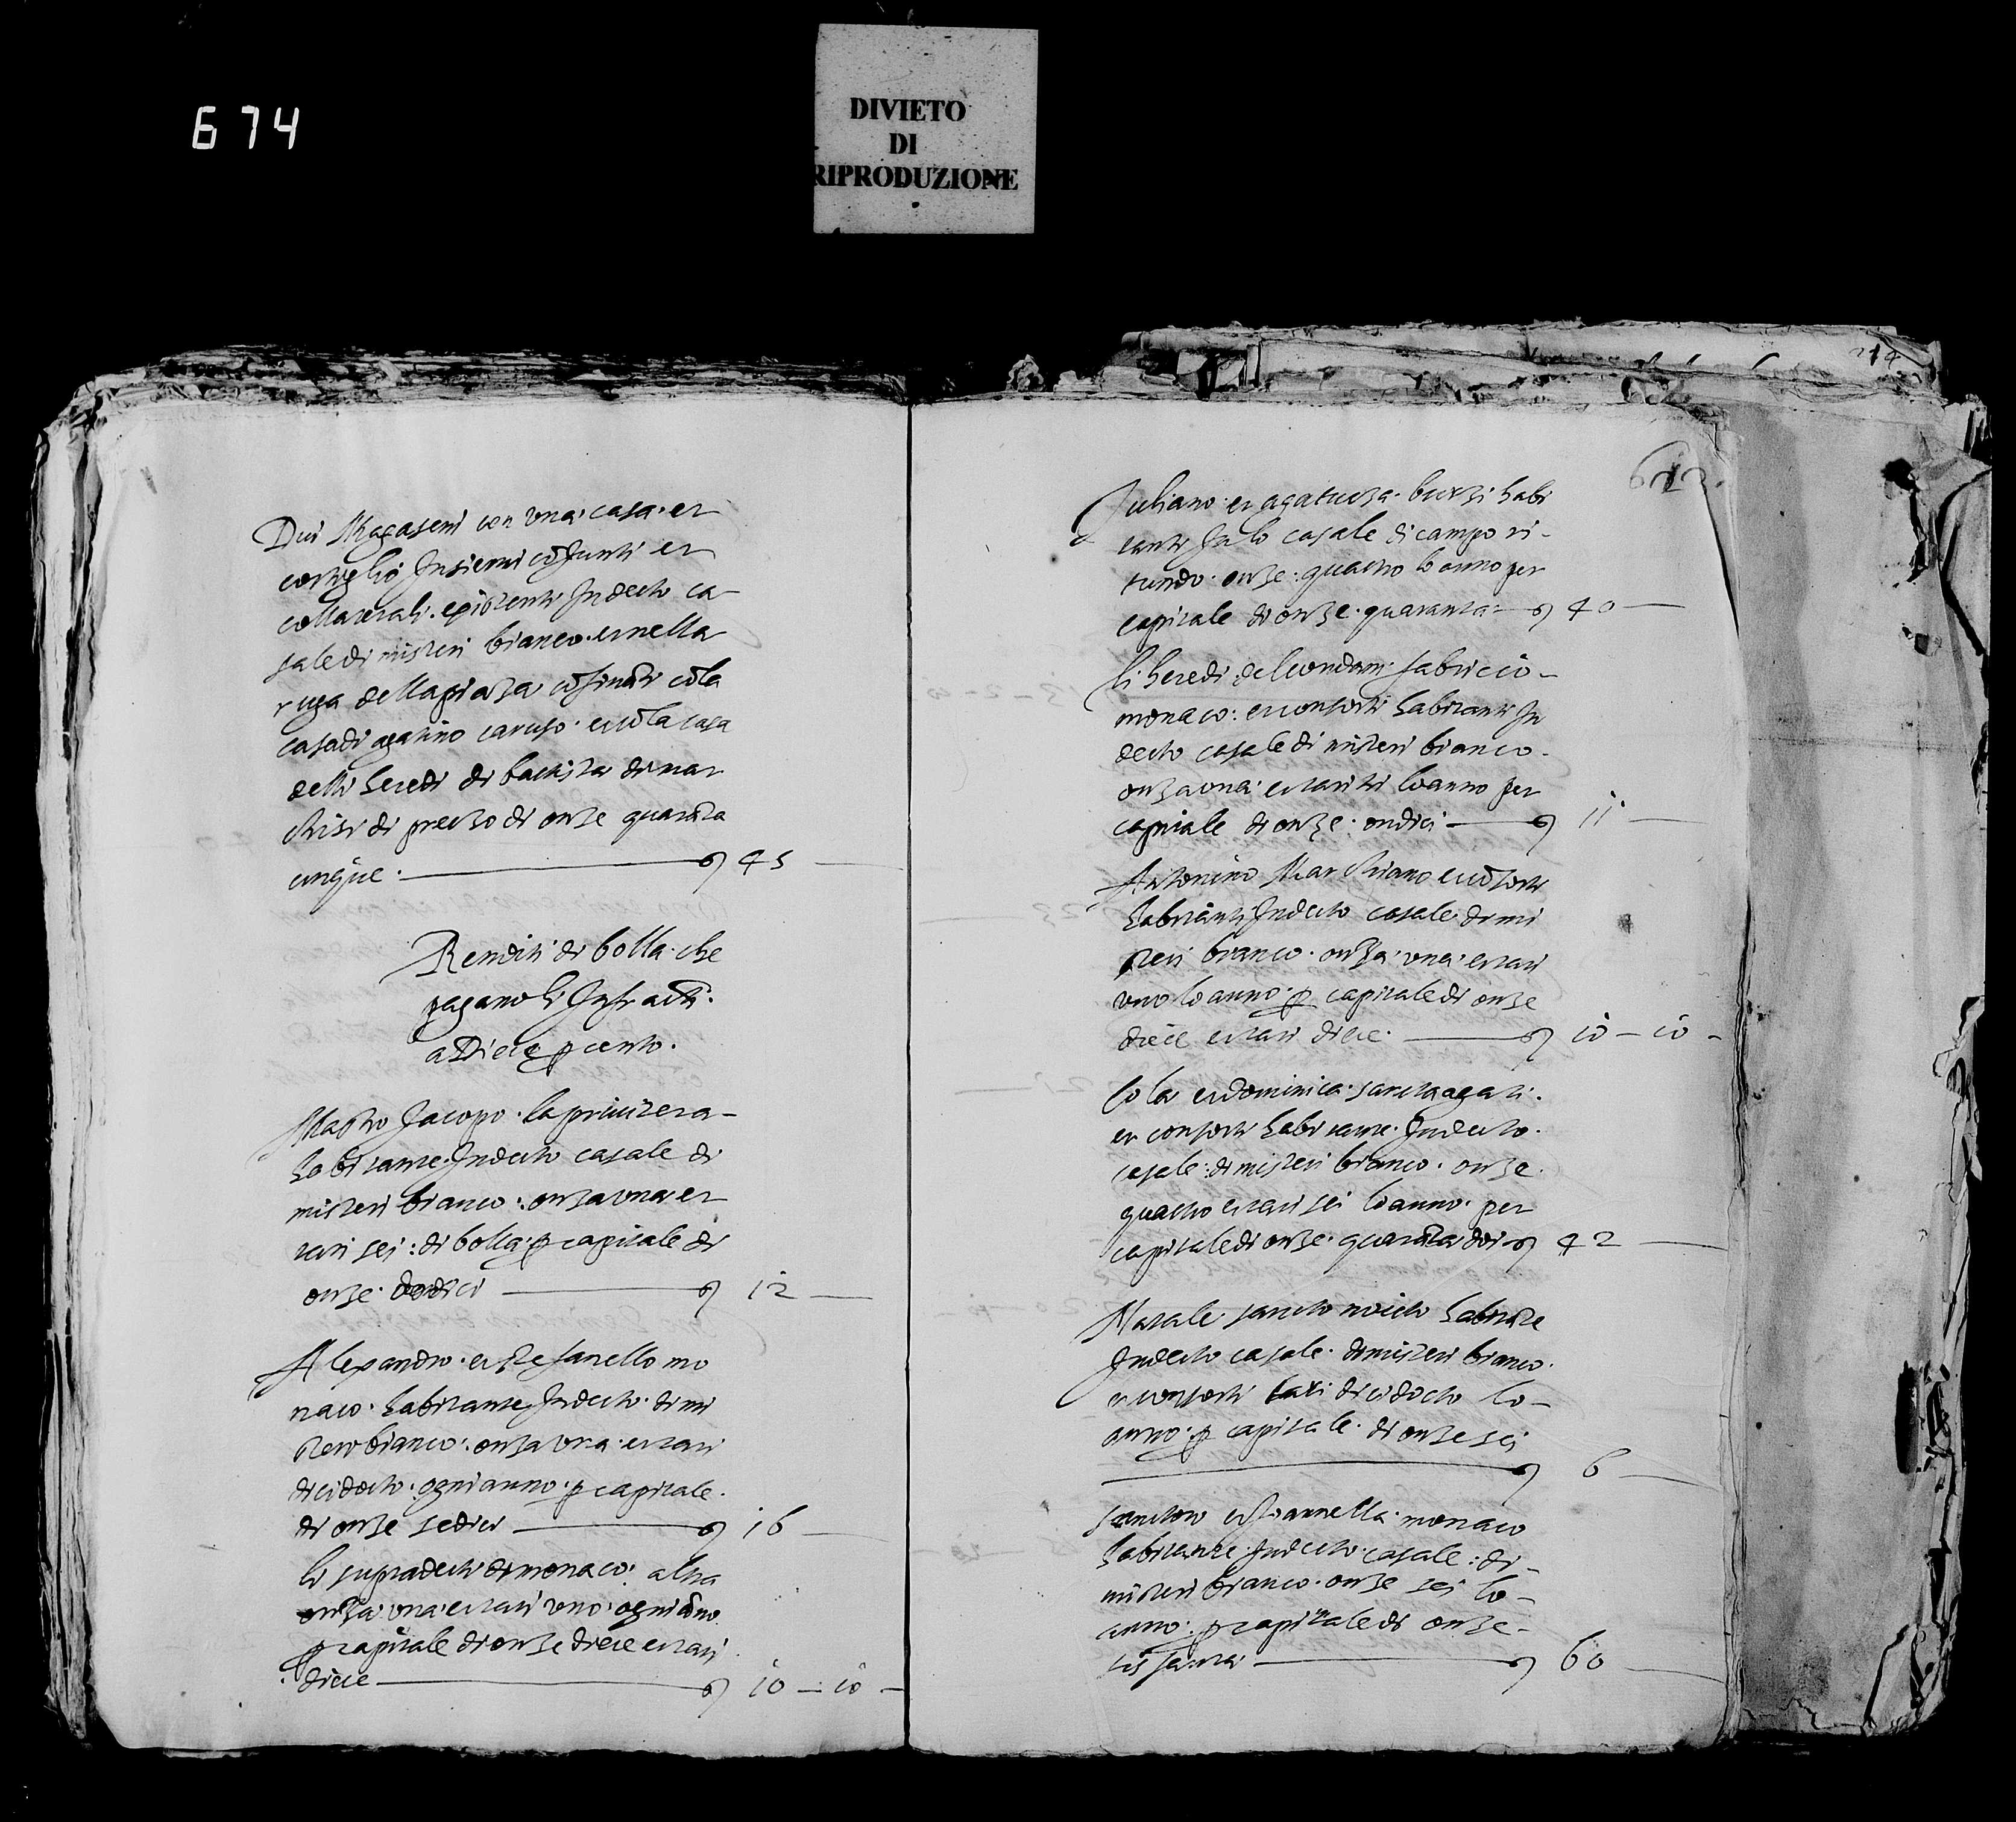 674
DIVIETO
DI
RIPRODUZIONE
Dui Magaseni con una casa et
cortiglio Insiemi cōJunti et
collaterali existenti Indecto ca-
sale di misteri bianco et nella
ruga della piazza cōfināti cō la
casa di agatino caruso et cō la casa
delli heredi di battista di mar
chisi di prezzo di onze quarāta
cinque. 45
Renditi di bolla che
pagano li Infracti
a Diece p cento.
Mastro Jacopo la privitera
habitante Indecto casale di
misteri bianco: onza una et
tari sei: di bolla p capitale di
onze dodici 12
Alexandro et stefanello mo
naco habitante Indecto di mi
stero bianco: onza una et tari
dicidocto ogni anno p capitale
di onze sedici 16
li supradecti di monaco altra
onza una et tari uno ogni āno
p capitale di onze diece et tari
diece 10 - 10 -
612
214
Juliano et agatuza burzi habi
tanti In lo casale di campo ri-
tundo onze quactro lo anno per
capitale di onze quaranta 40
li heredi del condam fabricio
monaco: et consorti habitanti In
decto casale di misteri bianco
onza una et tari tri lo anno per
capitale di onze undici 11
Antonino Marchiano et cōsorti
habitanti Indecto casale di mi
steri bianco onza una et tari
uno lo anno p capitale di onze
diece et tari diece 10 - 10 -
Cola et dominica sancta agati
et consorti habitante Indecto
casale di misteri bianco onze
quactro et tari sei lo anno per
capitale di onze quarāta dui 42
Natale sancto nocito habitāte
Indecto casale di misteri bianco
et consorti tari dicidocto lo
anno p capitale di onze sei
6
et Joannella monaco
habitante Indecto casale: di
misteri bianco onze sei lo
anno p capitale di onze
sissanta 60